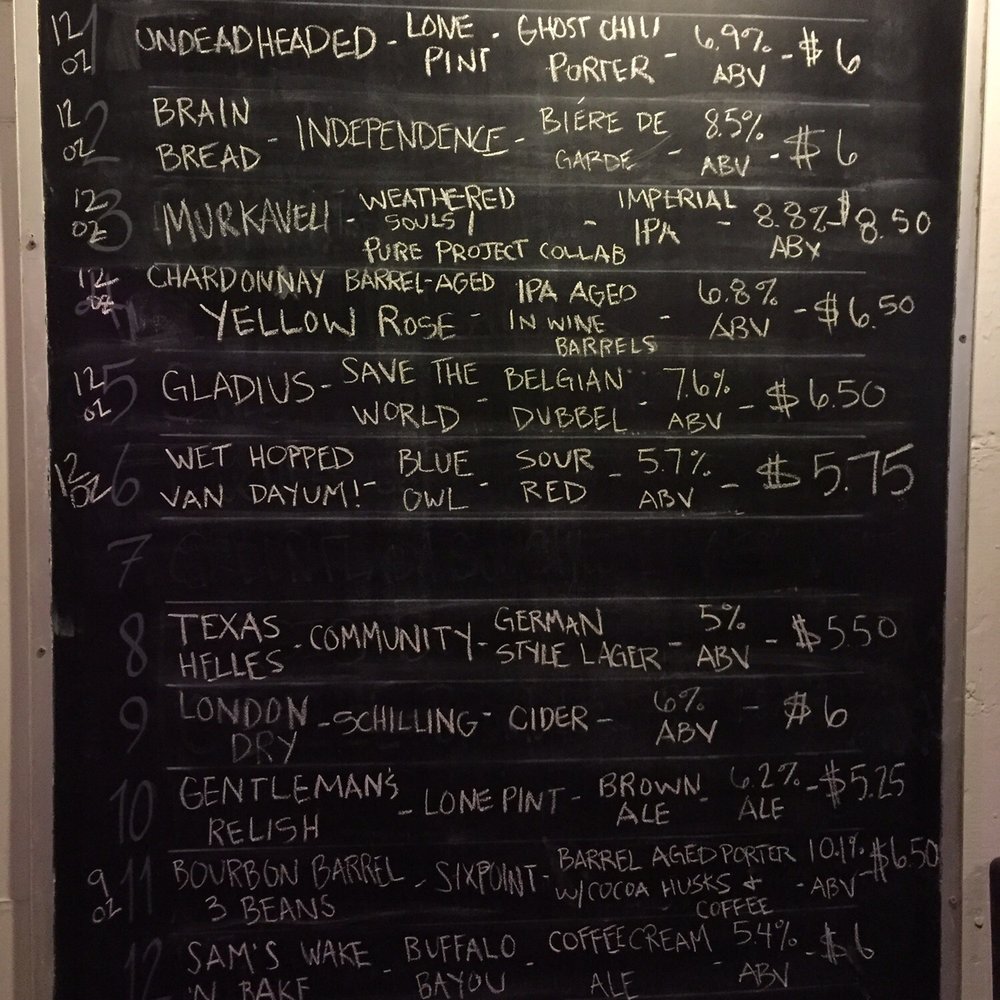 12 OZ 1 UNDEADHEADED - LONE PINT - GHOST CHILI PORTER - 6.9% ABV - $6
12 OZ 2 BRAIN BREAD - INDEPENDENCE - BIÉRE DE GARDE - 8.5% ABV - $6
12 OZ 3 MURKAVELI - WEATHERED SOULS / PURE PROJECT COLLAB - IMPERIAL IPA - 8.8% ABV - $8.50
12 OZ 4 CHARDONNAY BARREL-AGED YELLOW ROSE - IPA AGED IN WINE BARRELS - 6.8% ABV - $6.50
12 OZ 5 GLADIUS - SAVE THE WORLD - BELGIAN DUBBEL - 7.6% ABV - $6.50
12 OZ 6 WET HOPPED VAN DAYUM! - BLUE OWL - SOUR RED - 5.7% ABV - $5.75
7
8 TEXAS HELLES - COMMUNITY - GERMAN STYLE LAGER - 5% ABV - $5.50
9 LONDON DRY - SCHILLING - CIDER - 6% ABV - $6
10 GENTLEMAN'S RELISH - LONE PINT - BROWN ALE - 6.2% ALE - $5.25
9 OZ 11 BOURBON BARREL 3 BEANS - SIXPOINT - BARREL AGED PORTER W/COCOA HUSKS & COFFEE - 10.1% ABV - $6.50
12 SAM'S WAKE 'N BAKE - BUFFALO BAYOU - COFFEE CREAM ALE - 5.4% ABV - $6